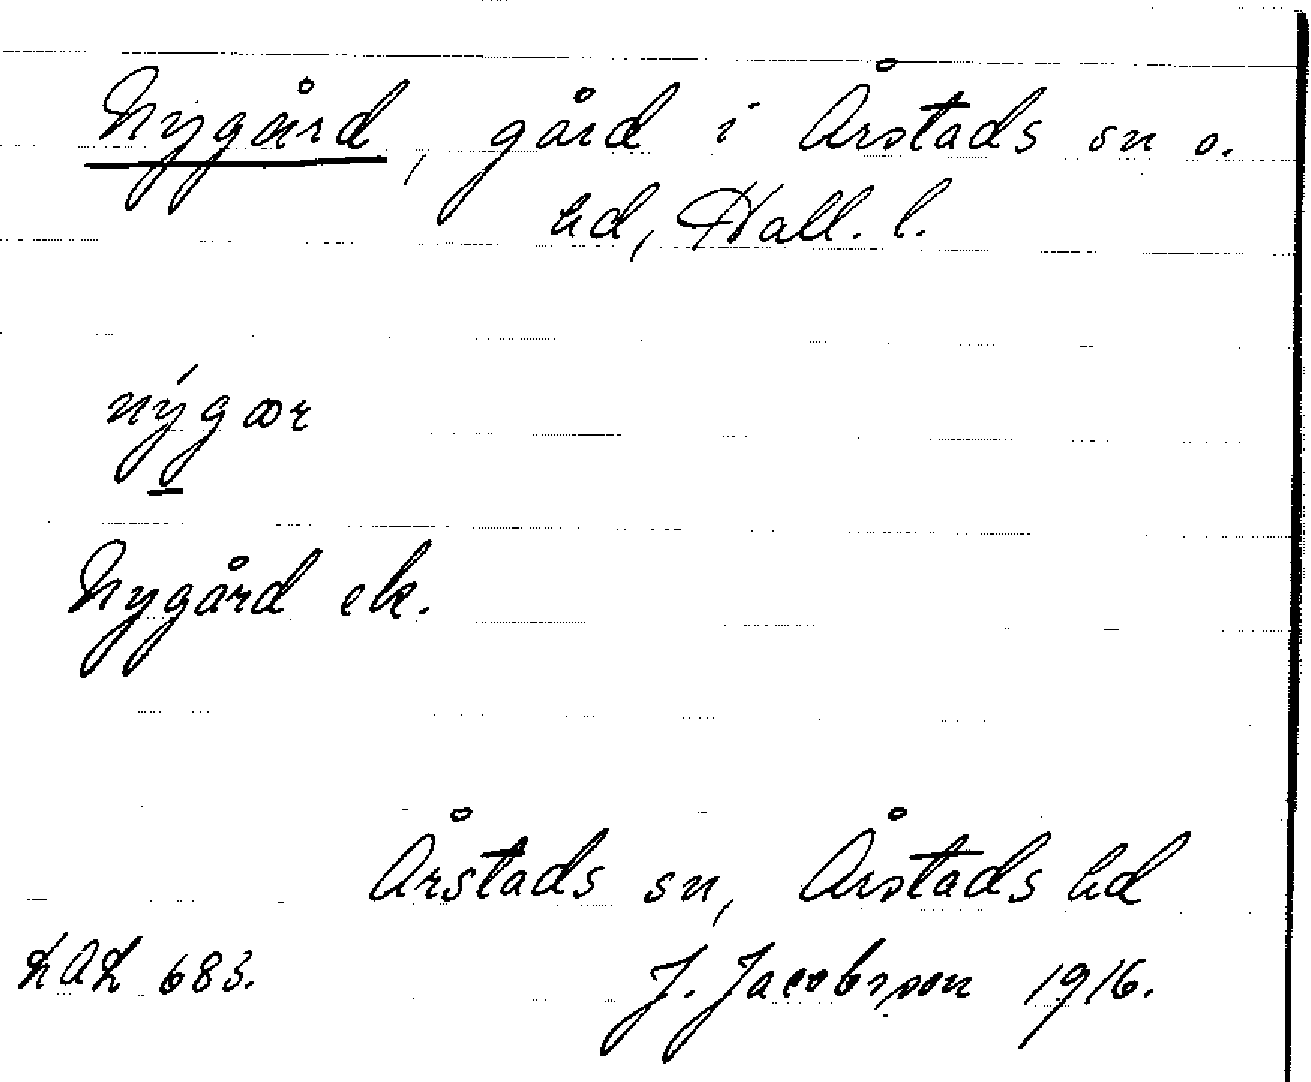 Nygård, gård i Årstads sn o.
hd, Hall. l.
nýgær
Nygård ek.
Årstads sn, Årstads hd
LAL 683.
J. Jacobsson 1916.